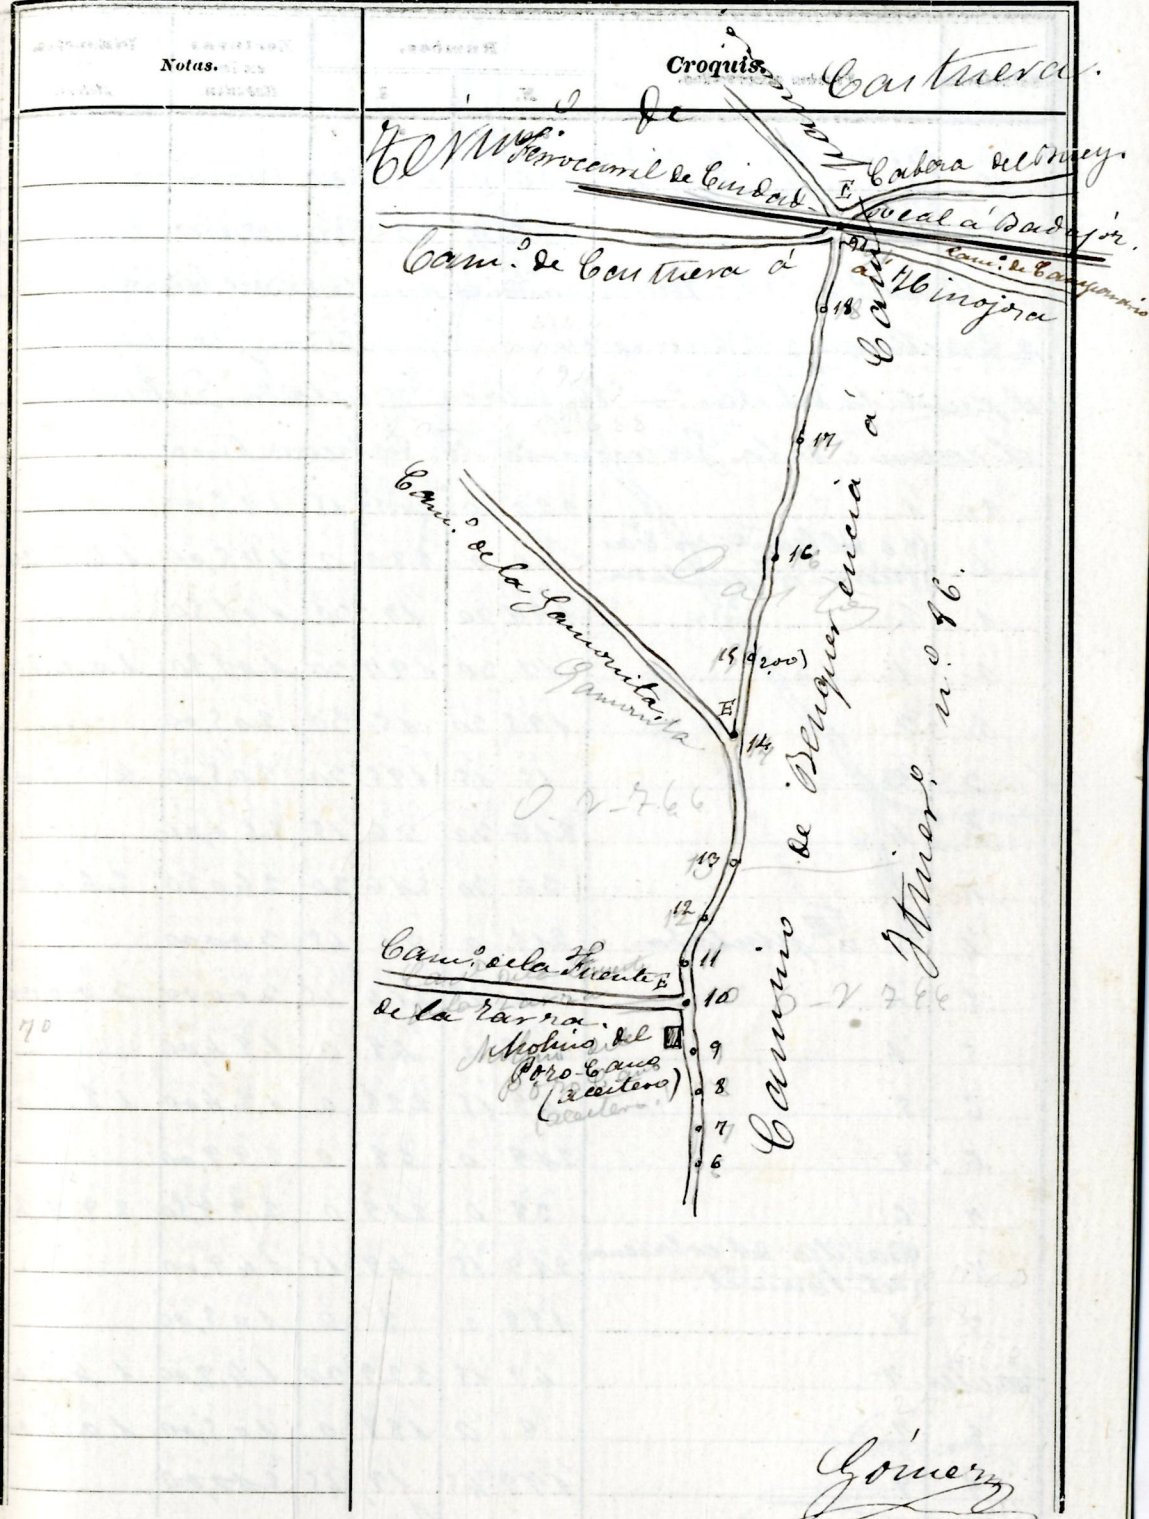 Notas.
Croquis.
Término de Castuera.
Ferrocarril de Ciudad-Real á Badajóz.
Cabeza del Buey.
Cam.º de Castuera á Hinojosa
Cam.º de Campanario á
18
17
16
15 (200)
E
14
13
12
11
10
9
8
7
6
Cam.º de la Gamonita.
Gamonita
Cam.º de la Fuente
de la Zarza.
E
Molino del
Pozo-Cano
(aceitero)
Camino de Benquerencia á Campanario
Itiner.º n.º 16.
O-V-766
O-V-766
70
E
Gómez